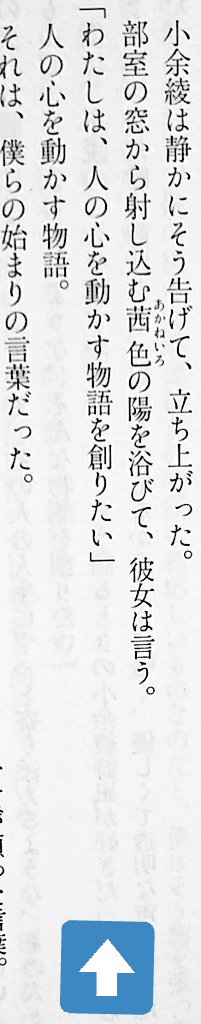 小余綾は静かにそう告げて、立ち上がった。
部室の窓から射し込む茜色の陽を浴びて、彼女は言う。
「わたしは、人の心を動かす物語を創りたい」
人の心を動かす物語。
それは、僕らの始まりの言葉だった。